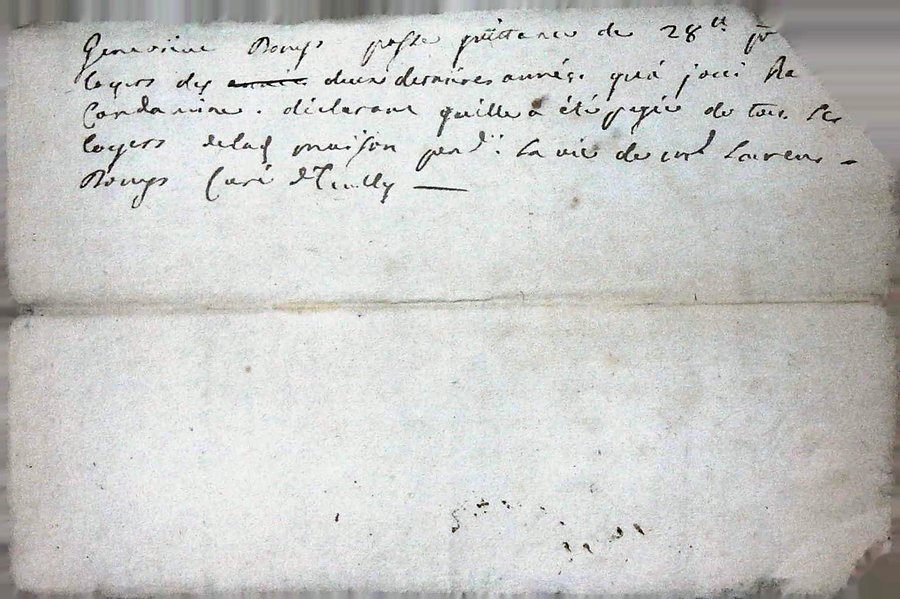 Genevieve Bouys passe quittance de 28 ᵗᵗ pr
loyers des années deux dernieres années. qua joui
Condamine. déclarant quelle a été payée de tous les
loyers delad maison pend.ᵗ la vie de Laurens
Bouys Curé